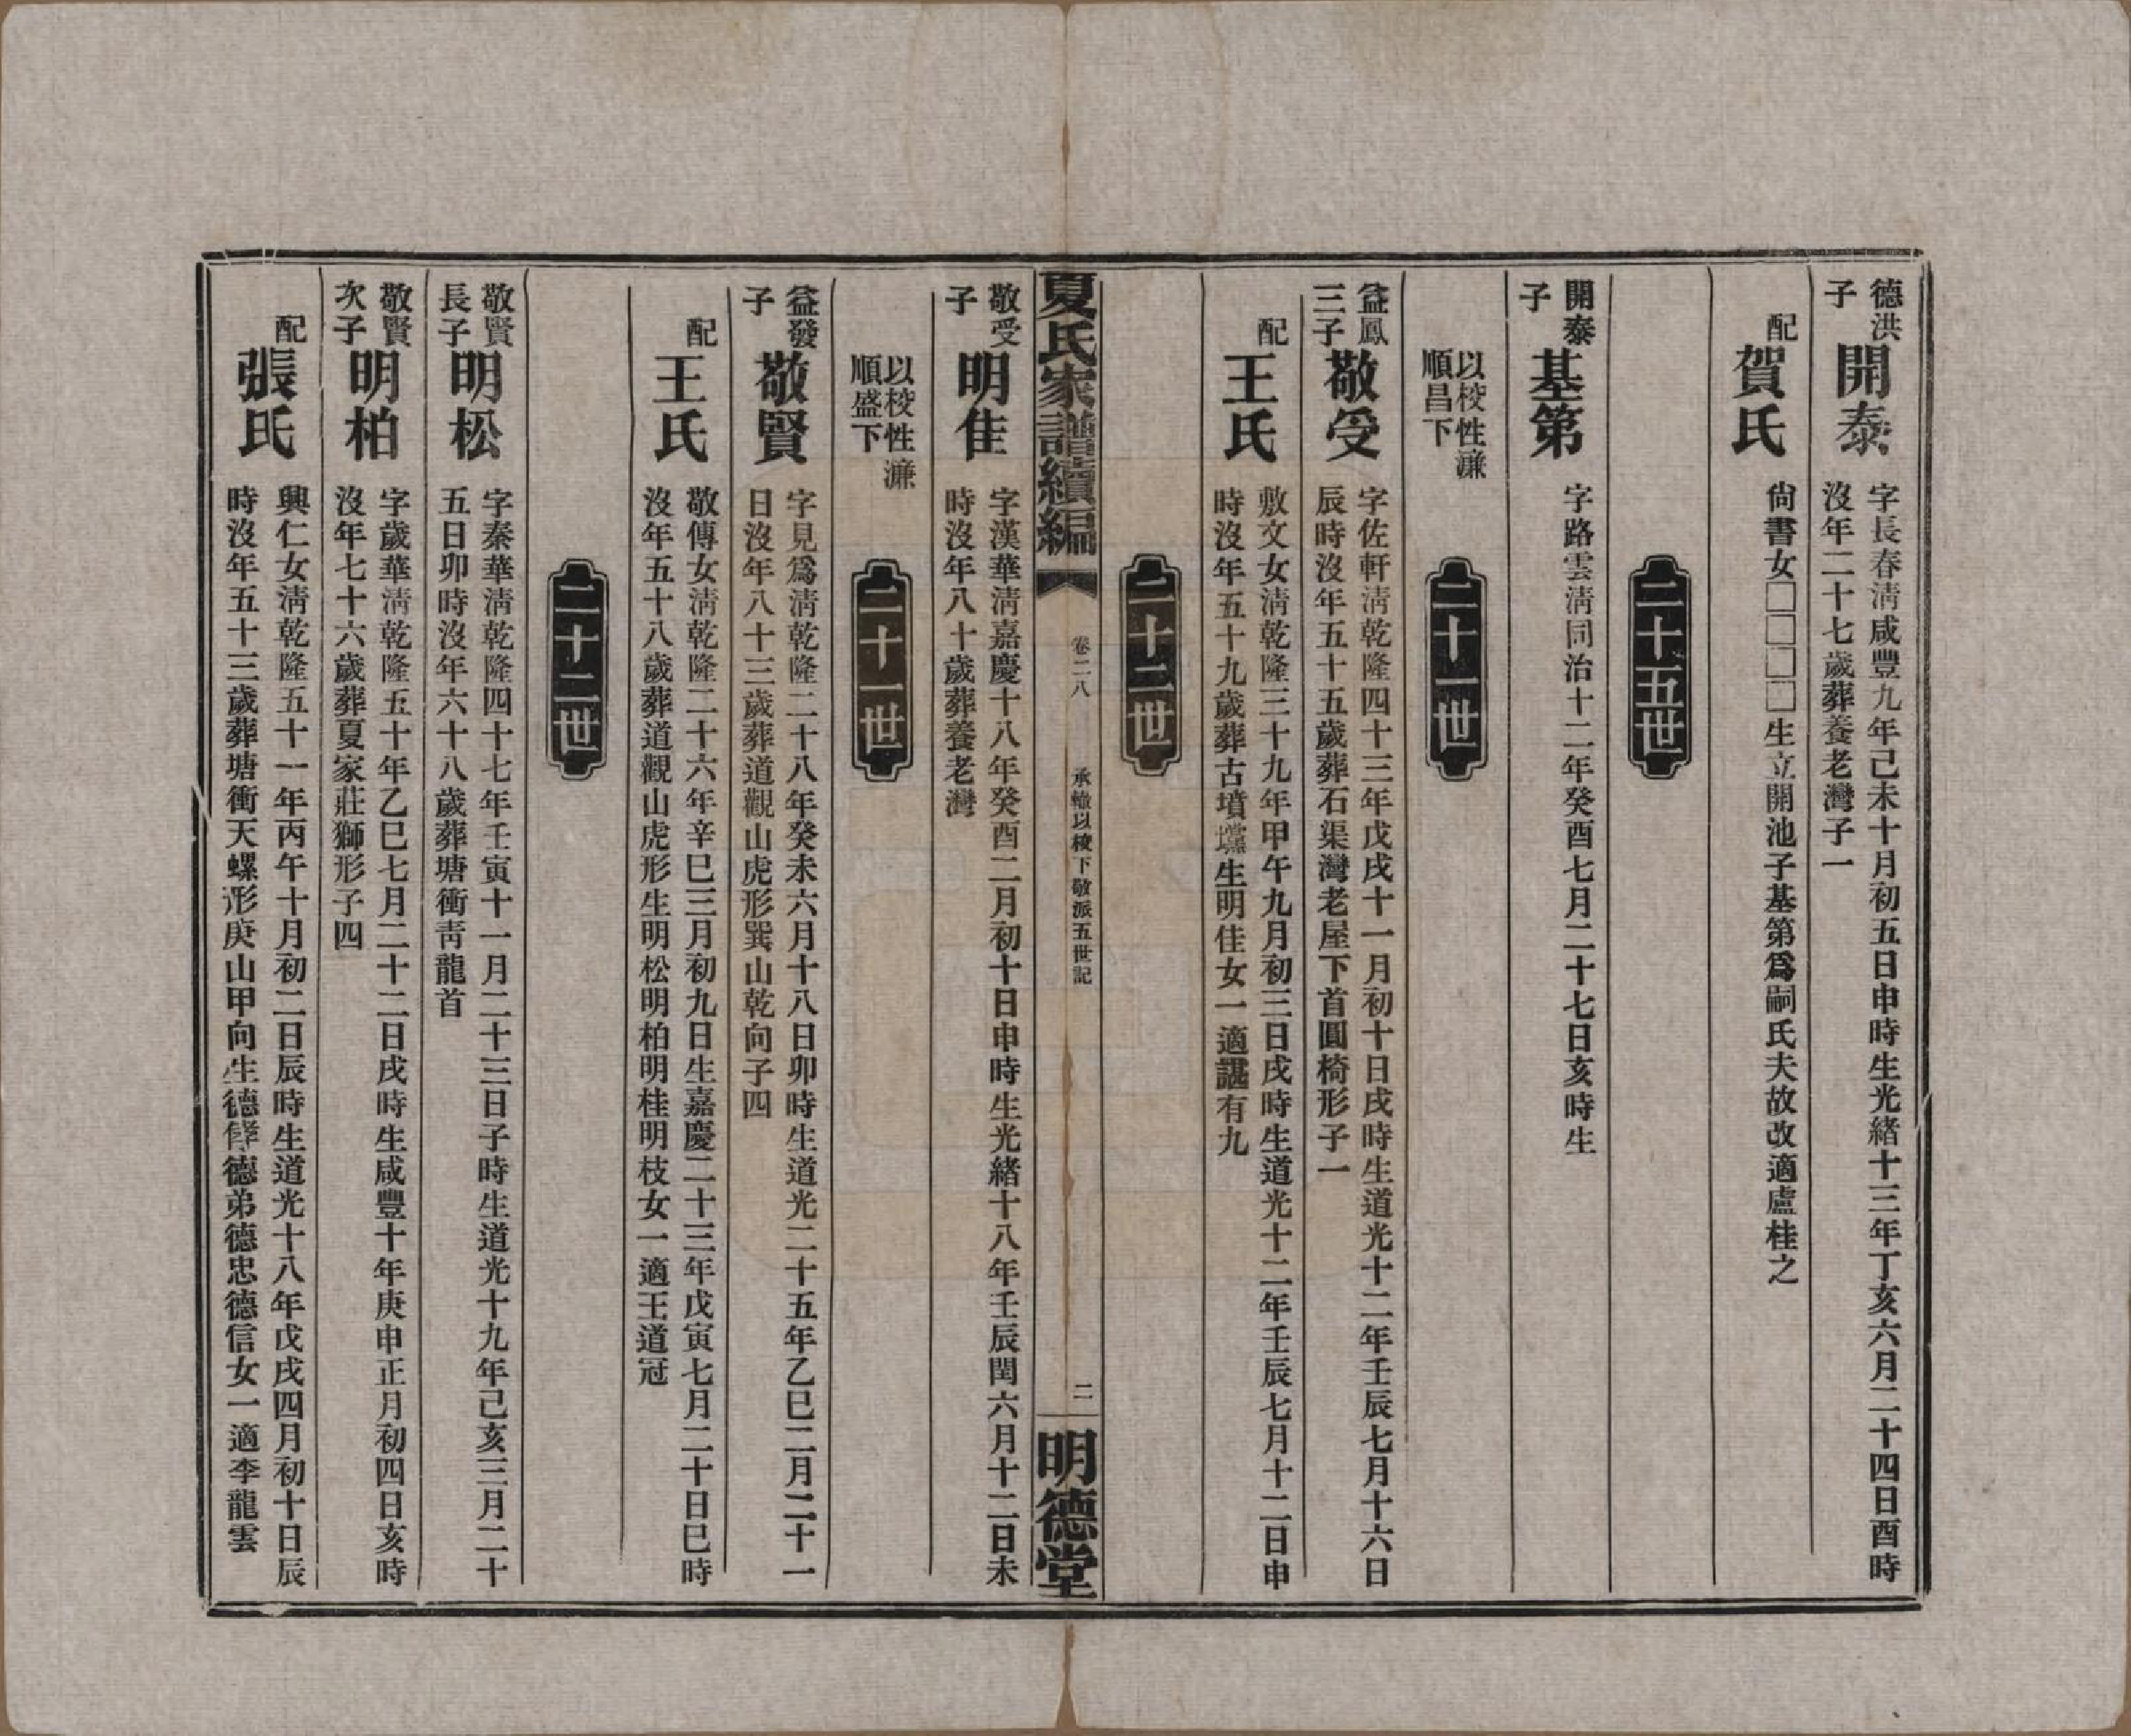 德洪
子
開泰
字長春淸咸豐九年己未十月初五日申時生光緒十三年丁亥六月二十四日酉時
沒年二十七歲葬養老灣子一
配
賀氏
尙書女□□□□生立開池子基第爲嗣氏夫故改適盧桂之
二十五世
開泰
子
基第
字路雲淸同治十二年癸酉七月二十七日亥時生
以稜性濂
順昌下
二十一世
益鳳
三子
敬受
字佐軒淸乾隆四十三年戊戌十一月初十日戌時生道光十二年壬辰七月十六日
辰時沒年五十五歲葬石渠灣老屋下首圓椅形子一
配
王氏
敷文女淸乾隆三十九年甲午九月初三日戌時生道光十二年壬辰七月十二日申
時沒年五十九歲葬古墳壋生明佳女一適諶有九
二十二世
夏氏家譜續編
卷二八
承轍以稜下敬派五世記
二
明德堂
敬受
子
明佳
字漢華淸嘉慶十八年癸酉二月初十日申時生光緒十八年壬辰閏六月十二日未
時沒年八十歲葬養老灣
以稜性濂
順盛下
二十一世
益發
子
敬賢
字見爲淸乾隆二十八年癸未六月十八日卯時生道光二十五年乙巳二月二十一
日沒年八十三歲葬道觀山虎形巽山乾向子四
配
王氏
敬傳女淸乾隆二十六年辛巳三月初九日生嘉慶二十三年戊寅七月二十日巳時
沒年五十八歲葬道觀山虎形生明松明柏明桂明枝女一適王道冠
二十二世
敬賢
長子
明松
字秦華淸乾隆四十七年壬寅十一月二十三日子時生道光十九年己亥三月二十
五日卯時沒年六十八歲葬塘衝靑龍首
敬賢
次子
明柏
字歲華淸乾隆五十年乙巳七月二十二日戌時生咸豐十年庚申正月初四日亥時
沒年七十六歲葬夏家莊獅形子四
配
張氏
興仁女淸乾隆五十一年丙午十月初二日辰時生道光十八年戊戌四月初十日辰
時沒年五十三歲葬塘衝天螺形庚山甲向生德㑺德弟德忠德信女一適李龍雲